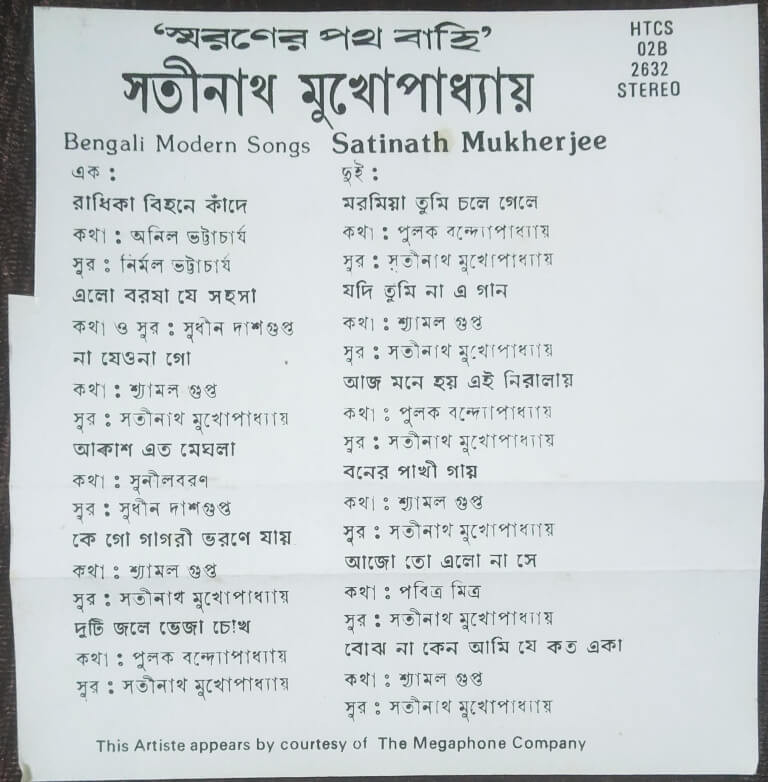 ‘স্মরণের পথ বাহি’
HTCS
02B
2632
STEREO
সতীনাথ মুখোপাধ্যায়
Bengali Modern Songs Satinath Mukherjee
এক :
রাধিকা বিহনে কাঁদে
কথা : অনিল ভট্টাচার্য
সুর : নির্মল ভট্টাচার্য
এলো বরষা যে সহসা
কথা ও সুর : সুধীন দাশগুপ্ত
না যেওনা গো
কথা : শ্যামল গুপ্ত
সুর : সতীনাথ মুখোপাধ্যায়
আকাশ এত মেঘলা
কথা : সুনীলবরণ
সুর : সুধীন দাশগুপ্ত
কে গো গাগরী ভরণে যায়
কথা : শ্যামল গুপ্ত
সুর : সতীনাথ মুখোপাধ্যায়
দুটি জলে ভেজা চোখ
কথা : পুলক বন্দ্যোপাধ্যায়
সুর : সতীনাথ মুখোপাধ্যায়
দুই :
মরমিয়া তুমি চলে গেলে
কথা : পুলক বন্দ্যোপাধ্যায়
সুর : সতীনাথ মুখোপাধ্যায়
যদি তুমি না এ গান
কথা : শ্যামল গুপ্ত
সুর : সতীনাথ মুখোপাধ্যায়
আজ মনে হয় এই নিরালায়
কথা : পুলক বন্দ্যোপাধ্যায়
সুর : সতীনাথ মুখোপাধ্যায়
বনের পাখী গায়
কথা : শ্যামল গুপ্ত
সুর : সতীনাথ মুখোপাধ্যায়
আজো তো এলো না সে
কথা : পবিত্র মিত্র
সুর : সতীনাথ মুখোপাধ্যায়
বোঝ না কেন আমি যে কত একা
কথা : শ্যামল গুপ্ত
সুর : সতীনাথ মুখোপাধ্যায়
This Artiste appears by courtesy of The Megaphone Company